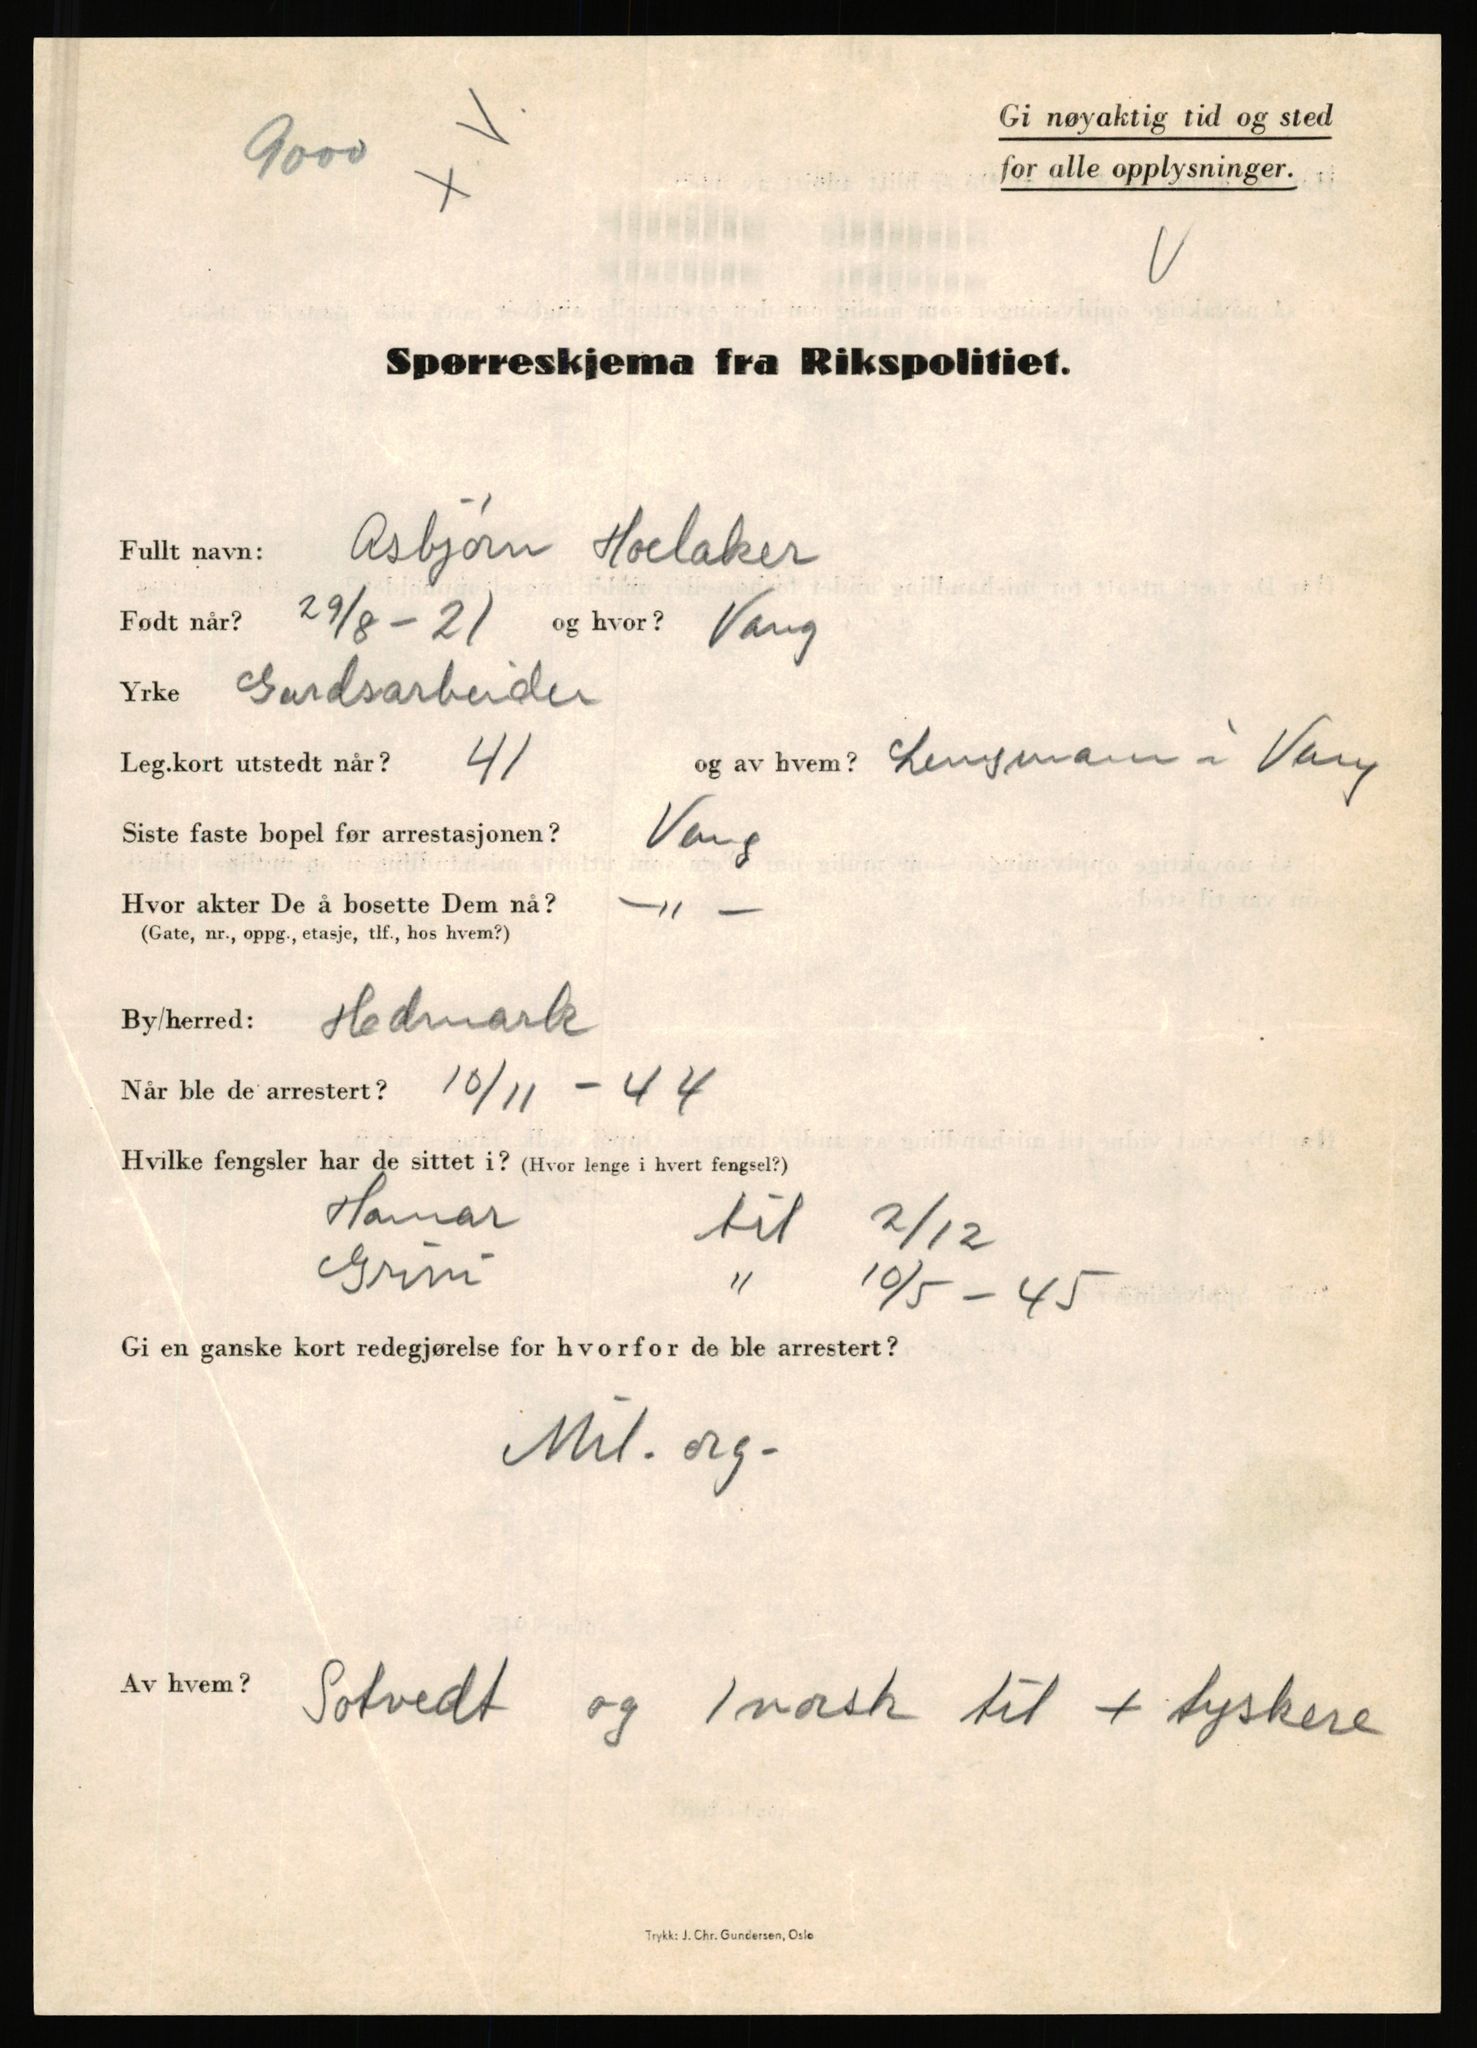 9000 x V.
Gi nøyaktig tid og sted
for alle opplysninger.
V
Spørreskjema fra Rikspolitiet.
Fullt navn: Asbjørn Hoelaker
Født når? 29/8 - 21 og hvor? Vang
Yrke Gardsarbeider
Leg.kort utstedt når? 41 og av hvem? Lensmann i Vang
Siste faste bopel før arrestasjonen? Vang
Hvor akter De å bosette Dem nå? —"—
(Gate, nr., oppg., etasje, tlf., hos hvem?)
By/herred: Hedmark
Når ble de arrestert? 10/11 - 44
Hvilke fengsler har de sittet i? (Hvor lenge i hvert fengsel?)
Hamar til 2/12
Grini " 10/5 - 45
Gi en ganske kort redegjørelse for hvorfor de ble arrestert?
Mil. org-
Av hvem? Sotvedt og 1 norsk til + tyskere
Trykk: J. Chr. Gundersen, Oslo